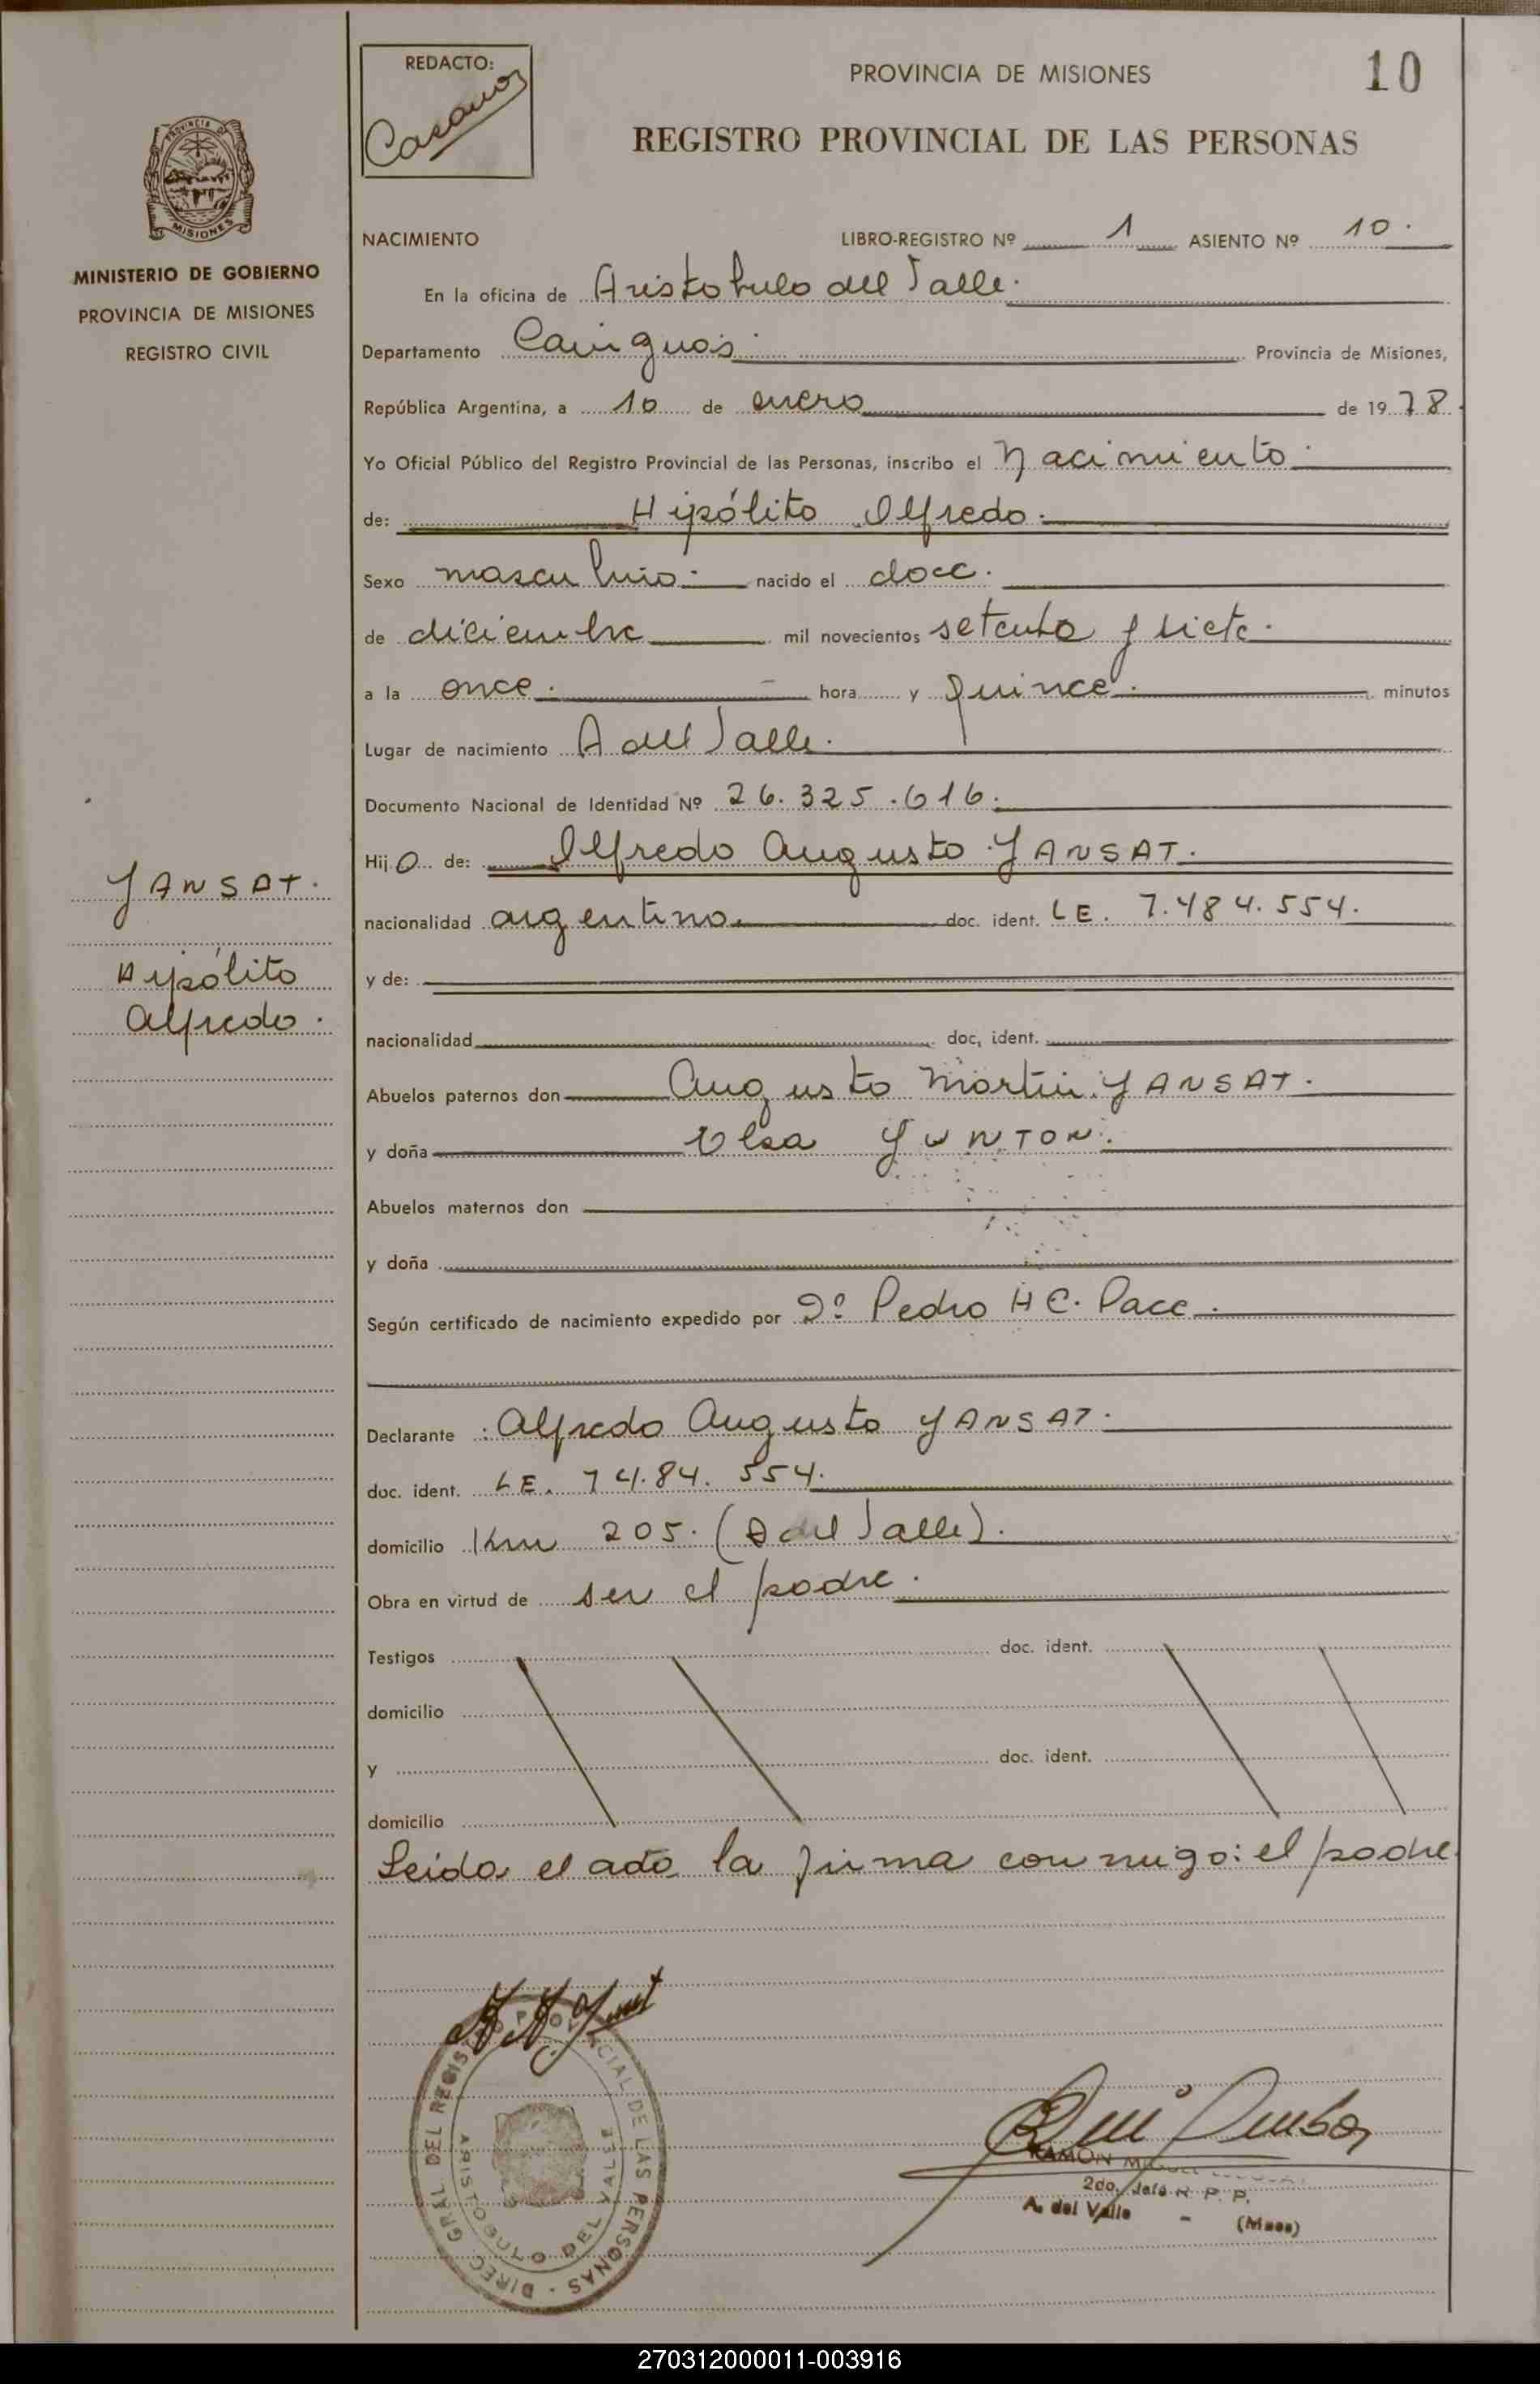 REDACTO:
PROVINCIA DE MISIONES
10
REGISTRO PROVINCIAL DE LAS PERSONAS
PROVINCIA DE
MISIONES
MINISTERIO DE GOBIERNO
PROVINCIA DE MISIONES
REGISTRO CIVIL
NACIMIENTO LIBRO-REGISTRO Nº 1 ASIENTO Nº 10.
En la oficina de Aristobulo del Valle.
Departamento Cainguás. Provincia de Misiones,
República Argentina, a 10 de enero de 1978.
Yo Oficial Público del Registro Provincial de las Personas, inscribo el Nacimiento.
de: Hipólito Alfredo.
Sexo masculino. nacido el doce.
de diciembre mil novecientos setenta y siete.
a la once. hora y quince. minutos
Lugar de nacimiento A del Valle.
Documento Nacional de Identidad Nº 26.325.616.
Hijo de: Alfredo Augusto YANSAT.
nacionalidad argentino. doc. ident. LE. 7.484.554.
y de:
nacionalidad doc. ident.
Abuelos paternos don Augusto Martin YANSAT.
y doña Elsa YUNTON.
Abuelos maternos don
y doña
Según certificado de nacimiento expedido por Dº Pedro H C. Pace.
Declarante: Alfredo Augusto YANSAT.
doc. ident. LE. 74.84.554.
domicilio Km 205. (A del Valle).
Obra en virtud de ser el padre.
Testigos doc. ident.
domicilio
y doc. ident.
domicilio
Leida el acta la firma conmigo: el padre
YANSAT.
Hipólito
Alfredo.
DIREC. GRAL DEL REGISTRO PROVINCIAL DE LAS PERSONAS
ARISTOBULO DEL VALLE
RAMON MIGUEL
2do. Jefe R. P. P.
A. del Valle - (Mnes)
270312000011-003916